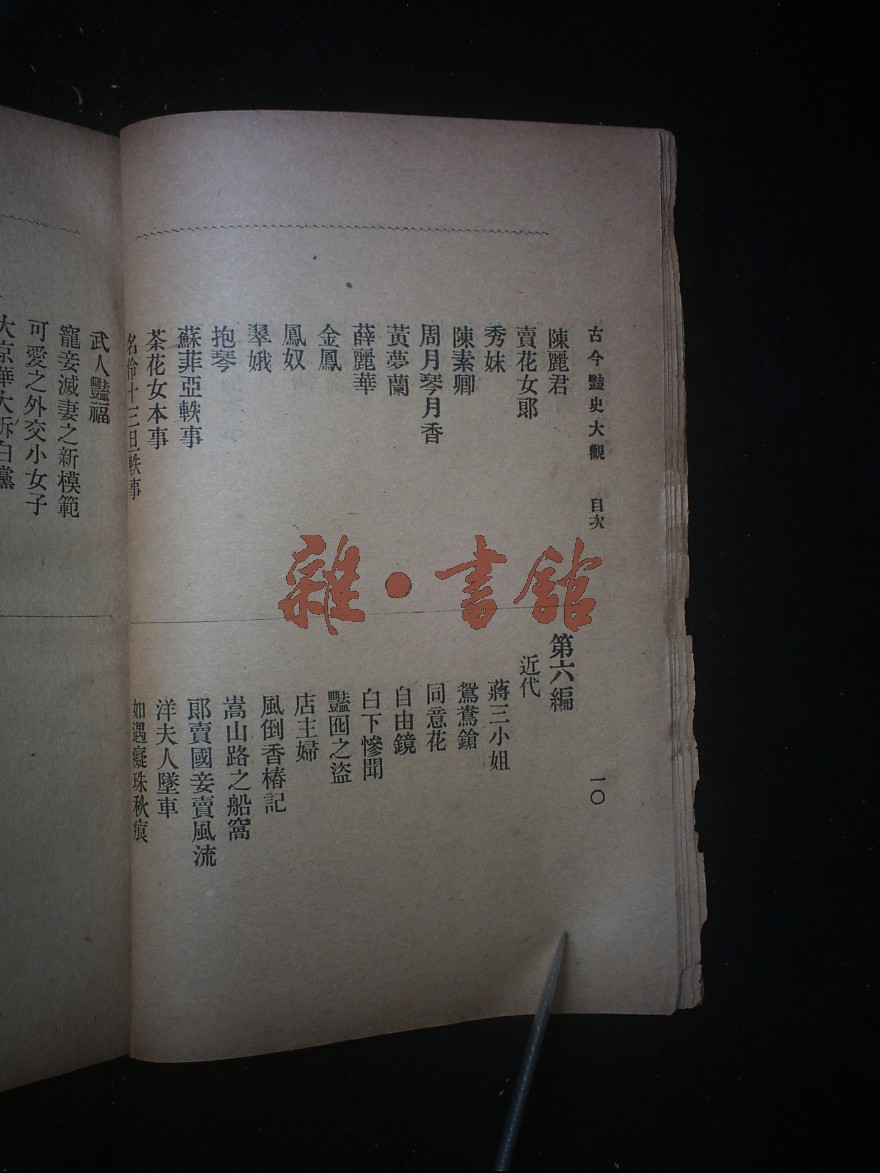 古今豔史大觀　目次　一〇
陳麗君
賣花女郞
秀妹
陳素卿
周月琴月香
黃夢蘭
薛麗華
金鳳
鳳奴
翠娥
抱琴
蘇菲亞軼事
茶花女本事
名伶十三旦軼事
第六編
近代
蔣三小姐
鴛鴦鎗
同意花
自由鏡
白下慘聞
豔囮之盜
店主婦
風倒香椿記
嵩山路之船窩
郞賣國妾賣風流
洋夫人墜車
如遇癡珠秋痕
武人豔福
寵妾滅妻之新模範
可愛之外交小女子
大京華大拆白黨
雜·書館